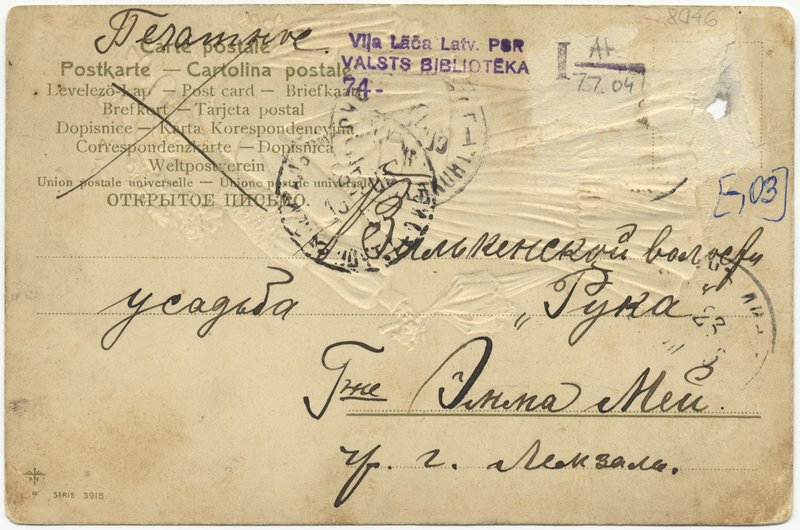 Печатное.
Carte postale
Postkarte — Cartolina postale
Levelező-Lap — Post card — Briefkaart
Brefkort — Tarjeta postal
Dopisnice — Karta Korespondencyjna
Correspondenzkarte — Dopisnica
Weltpostverein
Union postale universelle — Unione postale universale
ОТКРЫТОЕ ПИСЬМО.
Viļa Lāča Latv. PSR
VALSTS BIBLIOTĒKA
74-
8046
I
77.04
[-,03]
волости
усадьба „Рука"
Гже Эмма Мей.
г. Лемзаль.
SERIE 3915